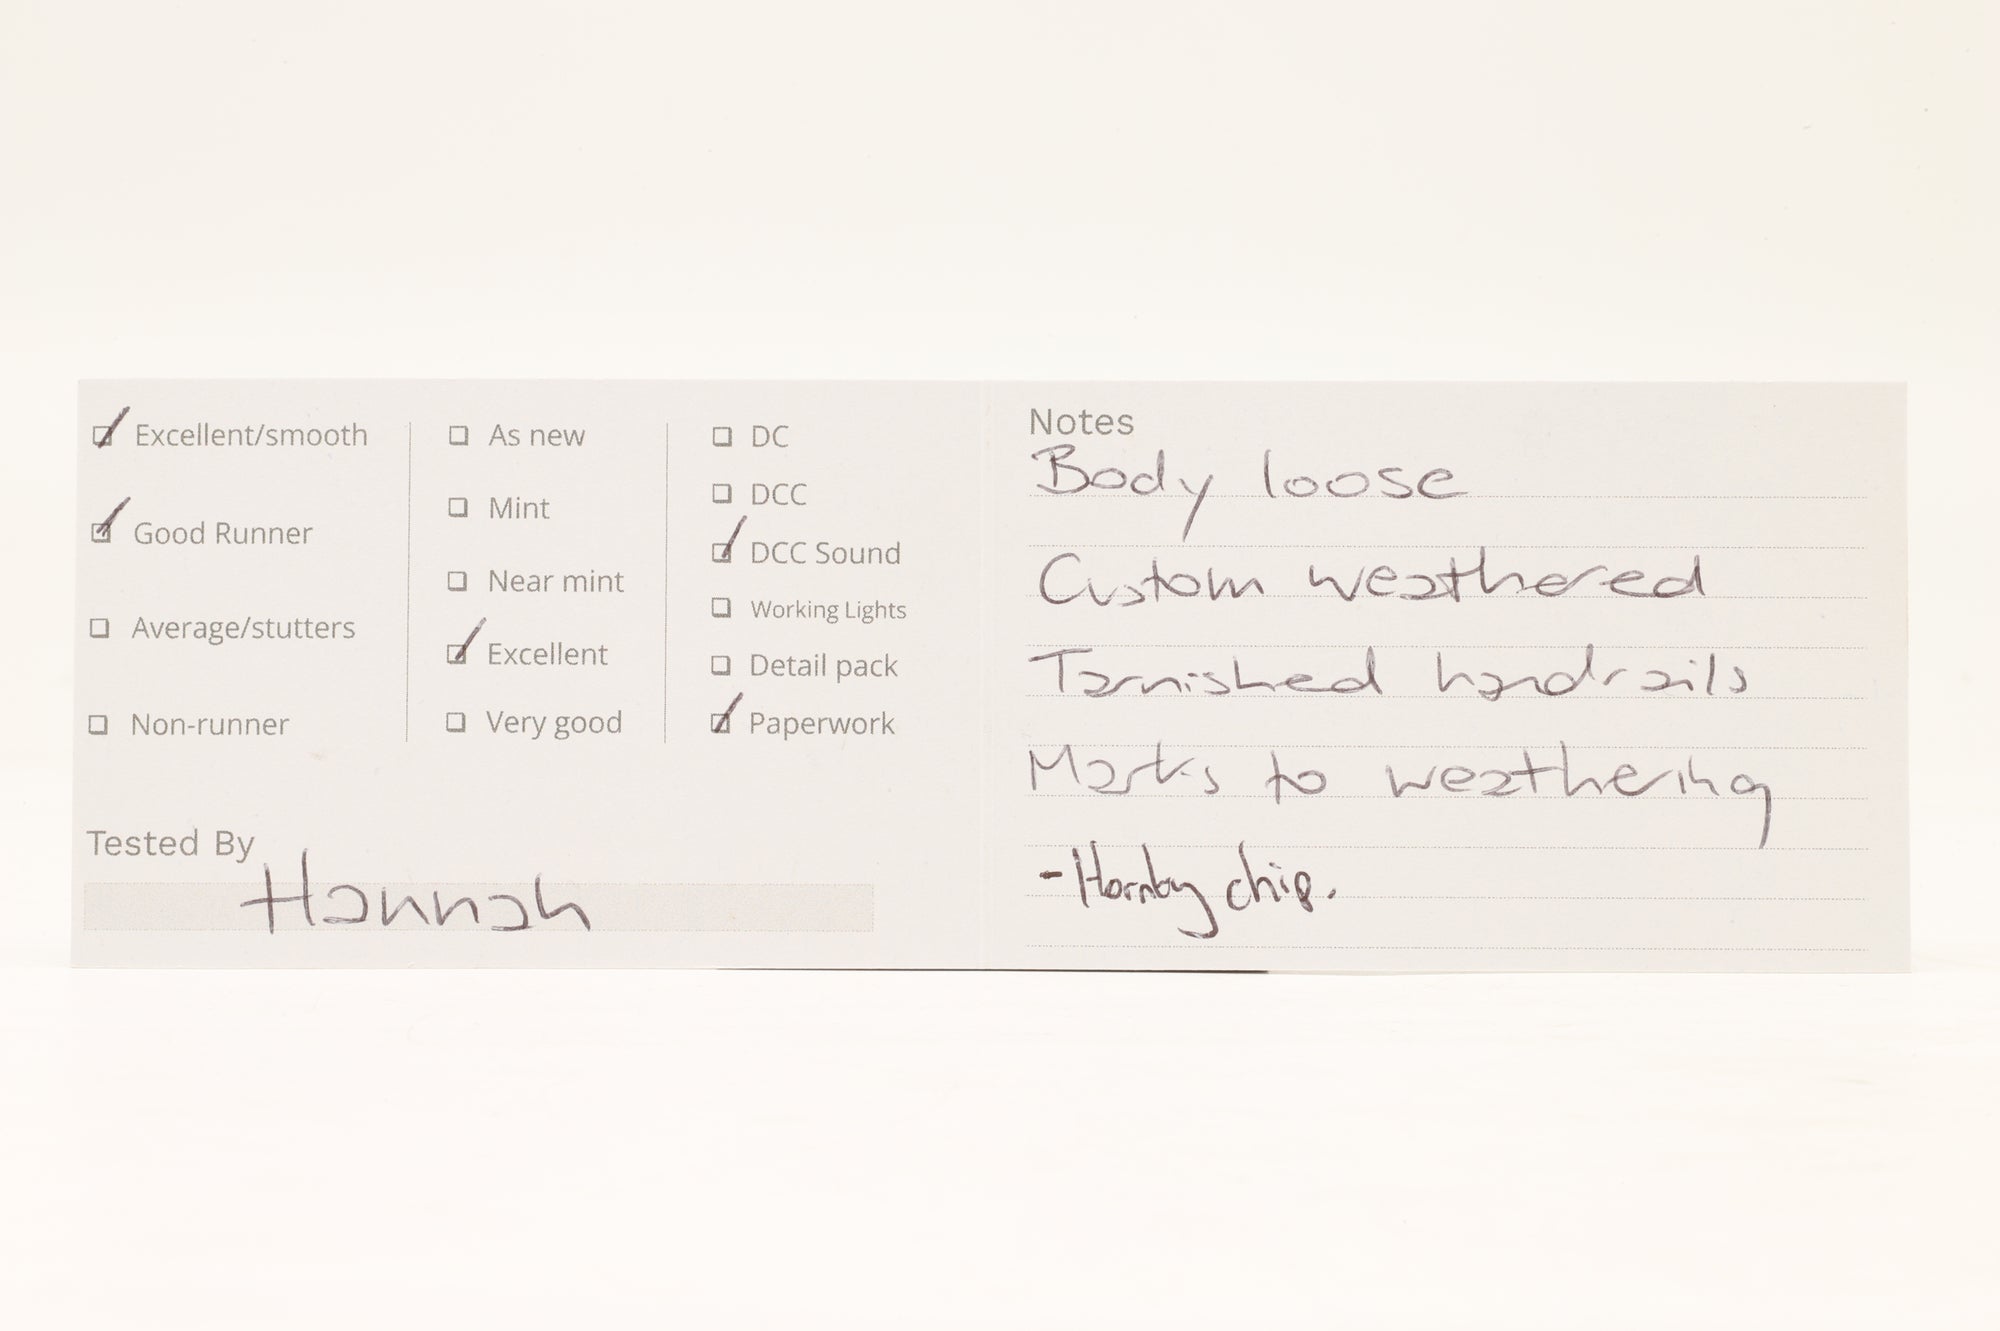 Excellent/smooth
Good Runner
Average/stutters
Non-runner
As new
Mint
Near mint
Excellent
Very good
DC
DCC
DCC Sound
Working Lights
Detail pack
Paperwork
Tested By
Hannah
Notes
Body loose
Custom weathered
Tarnished handrails
Marks to weathering
- Hornby chip.